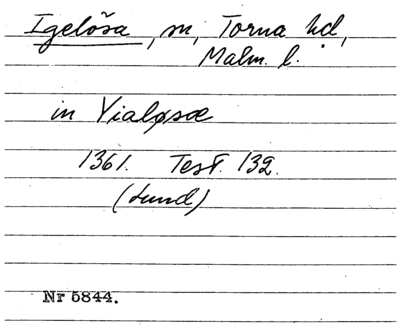 Igelösa, sn, Torna hd,
Malm. l.
in Yialøsæ
1361. Test. 132.
(Lund)
Nr 5844.